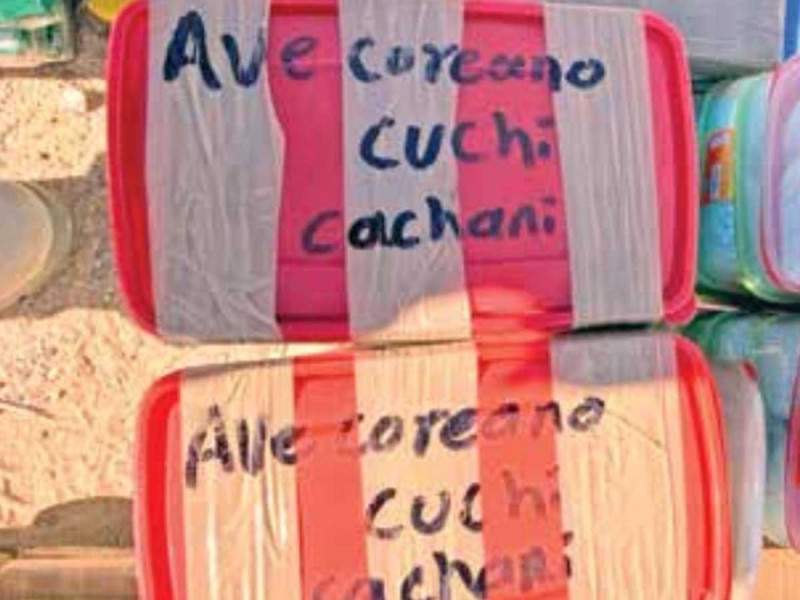 Ave coreano
cuchi
cachani
Ave coreano
cuchi
cachani